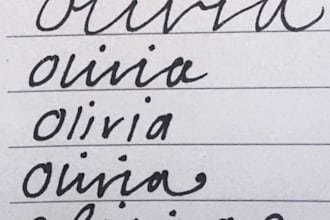 Olivia
Olivia
Olivia
Olivia